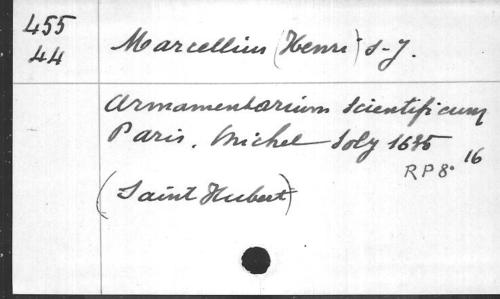 455
44
Marcellius (Henri) S-J.
Armamentarium Scientificum
Paris, Michel Soly 1635
RP8° 16
(Saint Hubert)